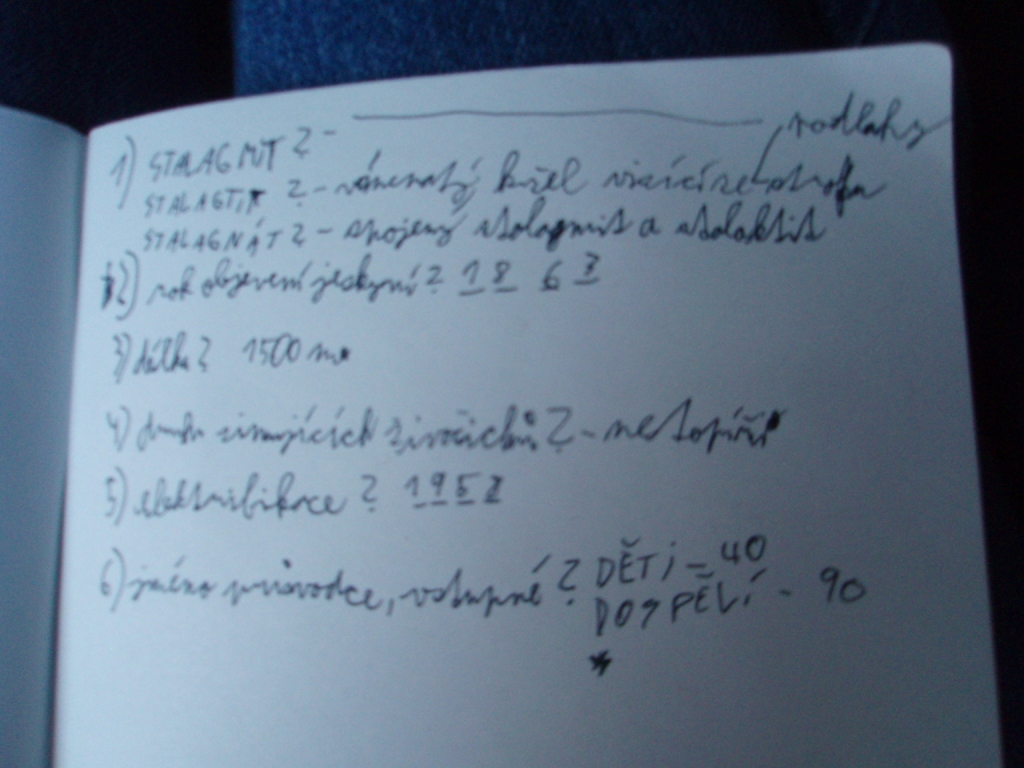 z podlahy
1) STALAGMIT ? -
STALAGTIT ? - vápenatý kužel visící ze stropu
STALAGNÁT ? - spojený stalagmit a stalaktit
2) rok objevení jeskyní ? 18 6 3
3) délka ? 1500 m
4) druh zimujících živočichů ? - netopýři
5) elektrifikace ? 195
6) jméno průvodce, vstupné ? DĚTI - 40
DOSPĚLÍ - 90